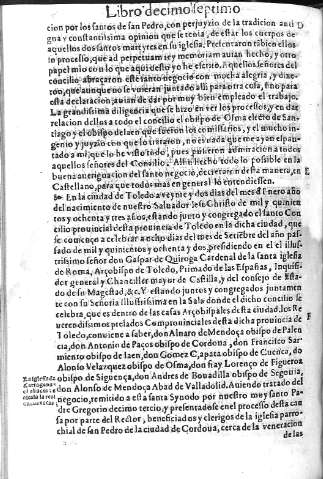 Libro decimo septimo
cion por los santos de san Pedro, con perjuyzio de la tradicion anti
gua y constantissima opinion que se tenia, de estar los cuerpos de
aquellos dos santos martyres en su iglesia. Presentaron tābien ellos
su processo, que ad perpetuam rey memoriam auian hecho, y otro
papel mio con lo que aqui desto yo he escrito. Aquellos señores del
concilio abraçaron este santo negocio con mucha alegria, y dixe-
ron, que aunque no se vuieran juntado alli para otra cosa, sino para
esta declaracion auian de dar por muy bien empleado el trabajo.
La grandissima diligencia que se hizo en ver los processos, y en dar
relacion dellos a todo el concilio el obispo de Osma electo de San-
tiago y el obispo de Iaen que fueron los comissarios, y el mucho in-
genio y juyzio con que lo trataron, no es nada que me aya espan-
tado a mi, que lo he visto todo, pues pusieron admiracion a todos
aquellos señores del Concilio. Assi hecho todo lo possible en la
buena aueriguacion del santo negocio, decretaron desta manera, en
Castellano, para que todos mas en general lo entendiessen.
En la ciudad de Toledo a veynte y dos dias del mes de Enero año
del nacimiento de nuestro Saluador Iesu Christo de mil y quinien
tos y ochenta y tres años, estando junto y congregado el santo Con
cilio prouincial desta prouincia de Toledo en la dicha ciudad, que
se començo a celebrar a ocho dias del mes de Setiēbre del año pas-
sado de mil y quinientos y ochenta y dos, presidiendo en el el illus-
trissimo señor don Gaspar de Quiroga Cardenal de la santa iglesia
de Roma, Arçobispo de Toledo, Primado de las Españas, Inquisi-
dor general y Chanciller mayor de Castilla, y del consejo de Esta-
do de su Magestad, &c. Y estando juntos y congregados juntamen
te con su Señoria Illustrissima en la Sala donde el dicho concilio se
celebra, que es dentro de las casas Arçobispales desta ciudad, los Re
uerendissimos prelados Comprouinciales desta dicha prouincia de
Toledo, conuiene a saber, don Aluaro de Mendoça obispo de Palen
cia, don Antonio de Paços obispo de Cordoua, don Francisco Sar
miento obispo de Iaen, don Gomez Çapata obispo de Cuenca, do
Alonso Velazquez obispo de Osma, don fray Lorenço de Figueroa
obispo de Siguença, don Andres de Bouadilla obispo de Segouia,
don Alonso de Mendoça Abad de Valladolid. Auiendo tratado del
negocio, remitido a esta santa Synodo por nuestro muy santo Pa
dre Gregorio decimo tercio, y presentādose en el processo desta cau
sa por parte del Rector, beneficiados y clerigos de la iglesia parro-
chial de san Pedro de la ciudad de Cordoua, cerca de la veneracion
de las